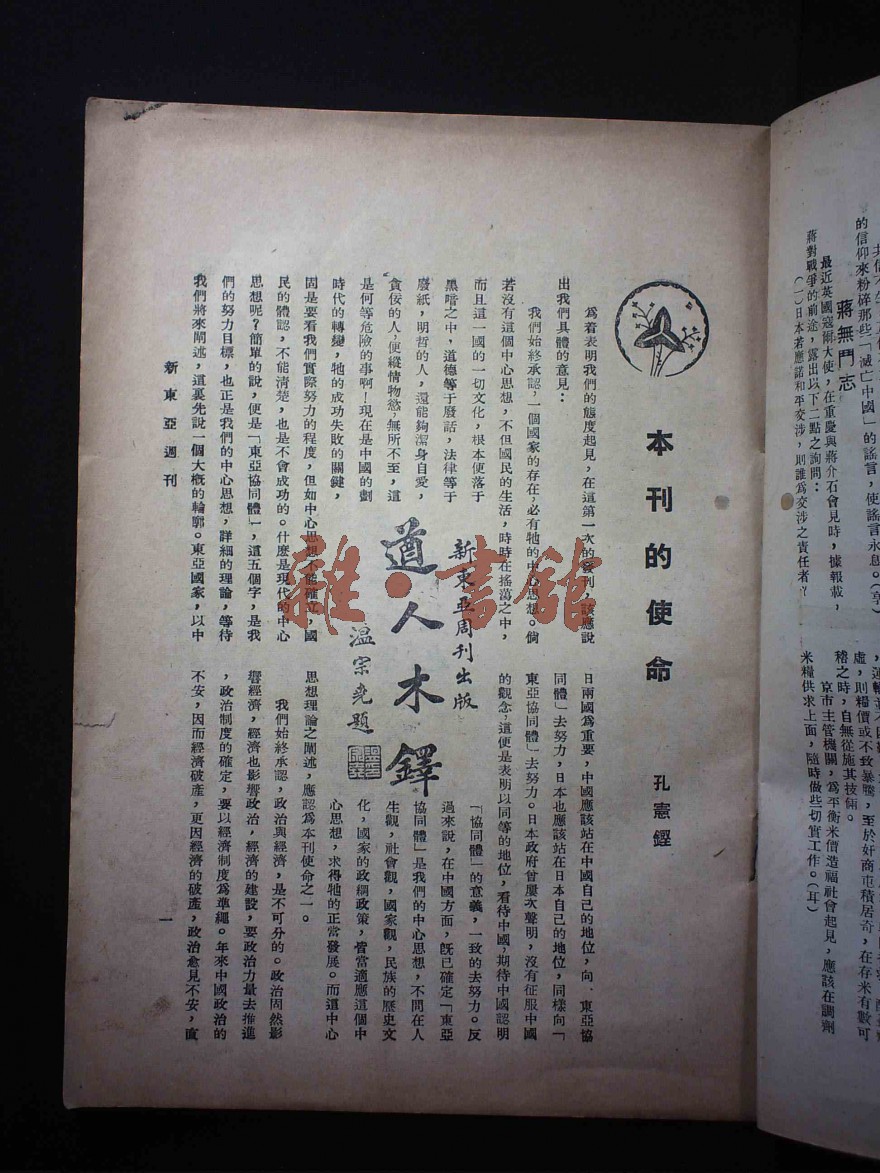 的信仰來粉碎那些「滅亡中國」的謠言，使謠言永息。（享）
蔣無鬥志
最近英國寇爾大使，在重慶與蔣介石會見時，據報載，
蔣對戰爭的前途，露出以下二點之詢問：
（一）日本若應諾和平交涉，則誰爲交涉之責任者？
虛，則糧價或不致暴騰，至於奸商屯積居奇，在存米有數可
稽之時，自無從施其技倆。
京市主管機關，爲平衡米價造福社會起見，應該在調劑
米糧供求上面，隨時做些切實工作。（耳）
本刊的使命
孔憲鏗
爲着表明我們的態度起見，在這第一次的發刊，該應說
出我們具體的意見：
我們始終承認，一個國家的存在，必有牠的中心思想。倘
若沒有這個中心思想，不但國民的生活，時時在搖蕩之中，
而且這一國的一切文化，根本便落于
黑暗之中，道德等于廢話，法律等于
廢紙，明哲的人，還能夠潔身自愛，
貪佞的人，便縱情物慾，無所不至，這
是何等危險的事啊！現在是中國的劃
時代的轉變，牠的成功失敗的關鍵，
固是要看我們實際努力的程度，但如中心思想不能確立，國
民的體認，不能清楚，也是不會成功的。什麽是現代的中心
思想呢？簡單的說，便是「東亞協同體」，這五個字，是我
們的努力目標，也正是我們的中心思想，詳細的理論，等待
我們將來闡述，這裏先說一個大概的輪廓。東亞國家，以中
新東亞周刊出版
遒人木鐸
溫宗堯題
日兩國爲重要，中國應該站在中國自己的地位，向、東亞協
同體」去努力，日本也應該站在日本自己的地位，同樣向「
東亞協同體」去努力。日本政府曾屢次聲明，沒有征服中國
的觀念，這便是表明以同等的地位，看待中國，期待中國認明
「協同體」的意義，一致的去努力。反
過來說，在中國方面，旣已確定「東亞
協同體」是我們的中心思想，不問在人
生觀，社會觀，國家觀，民族的歷史文
化，國家的政綱政策，皆當適應這個中
心思想，求得牠的正常發展。而這中心
思想理論之闡述，應認爲本刊使命之一。
我們始終承認，政治與經濟，是不可分的。政治固然影
響經濟，經濟也影響政治，經濟的建設，要政治力量去推進
，政治制度的確定，要以經濟制度爲準繩。年來中國政治的
不安，因而經濟破產，更因經濟的破產，政治愈見不安，直
新東亞週刊
一
雜·書館